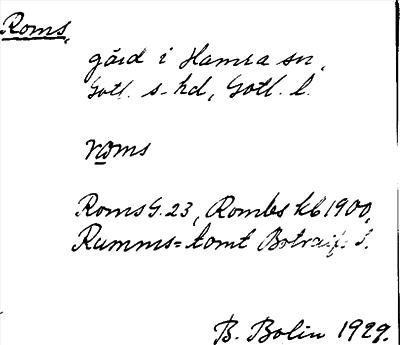 Roms,
gård i Hamra sn,
Gotl. s. hd, Gotl. l.
roms
Roms G. 23, Rombs kb 1900,
Rumms=tomt
B. Bolin 1929.